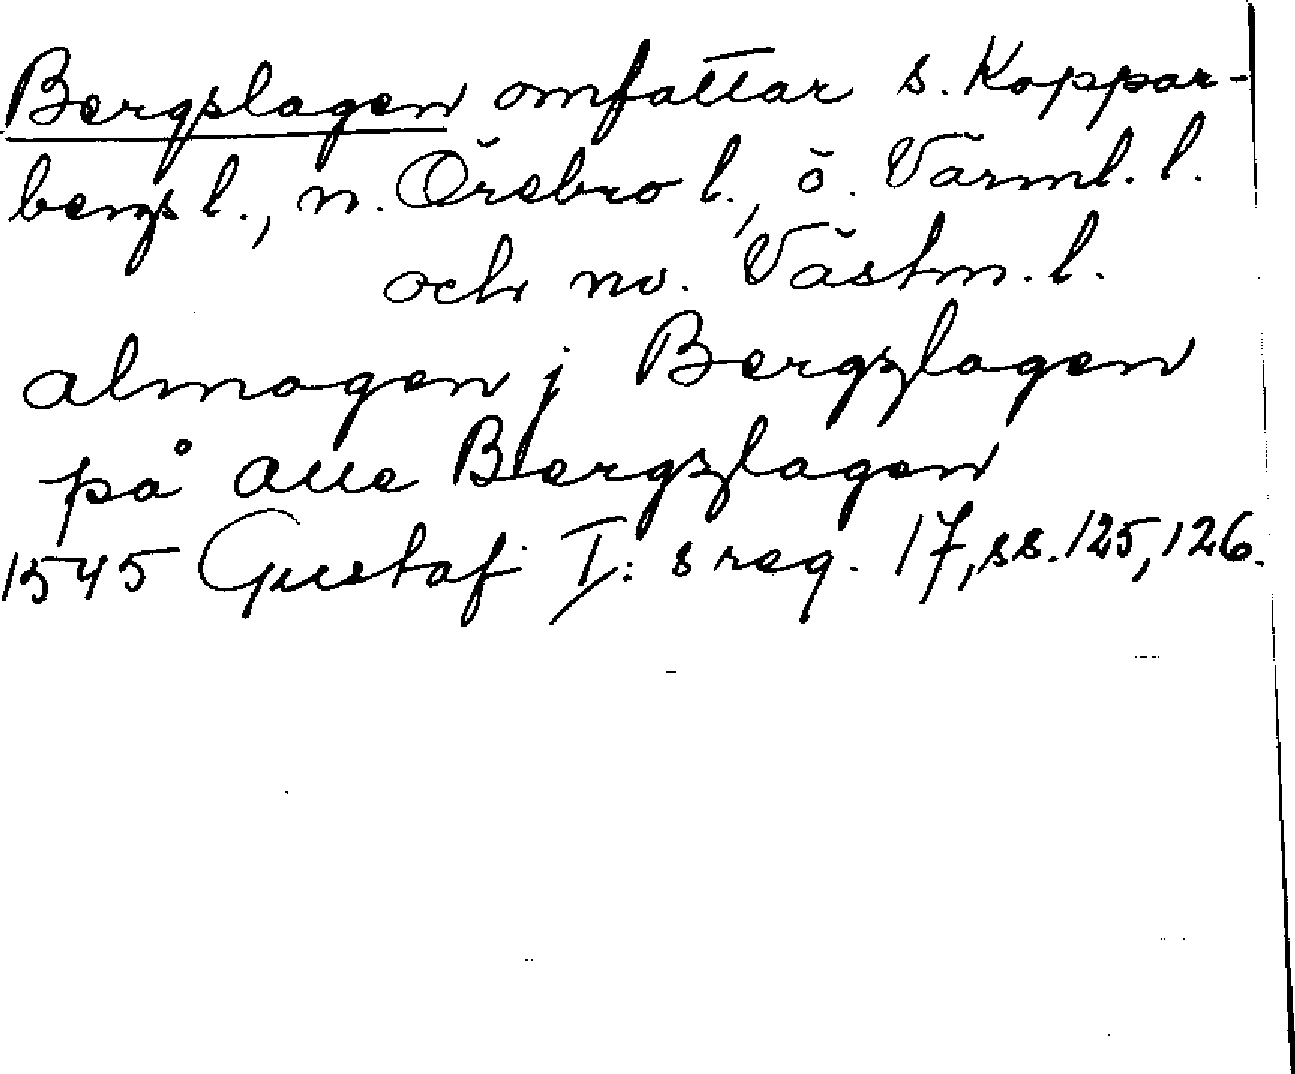 Bergslagen omfattar s. Koppar-
bergs l., n. Örebro l., ö. Värml. l.
och nv. Västm. l.
almogen j Bergzlagen
på alle Bergzlagen
1545 Gustaf I:s reg. 17, ss. 125, 126.